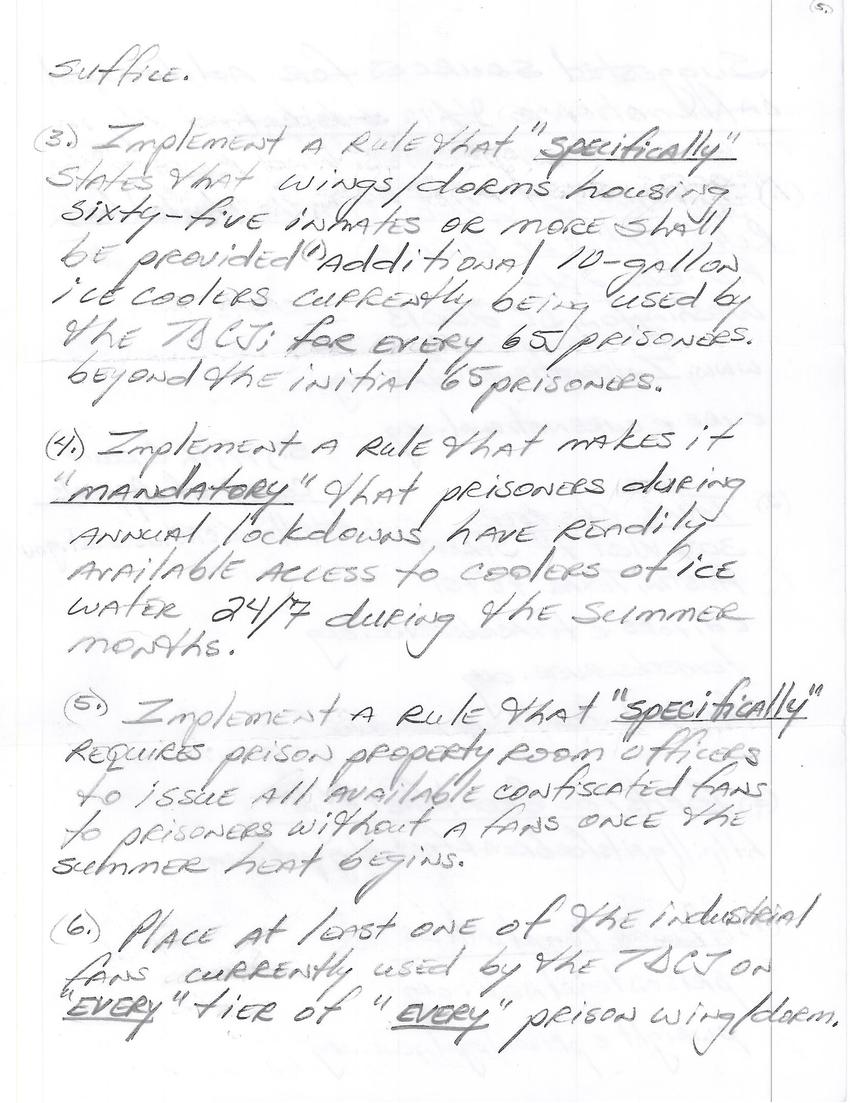 (5.)
suffice.
(3.) Implement a rule that "specifically"
states that wings/dorms housing
sixty-five inmates or more shall
be provided (1) additional 10-gallon
ice coolers currently being used by
the TDCJ; for every 65 prisoners.
beyond the initial 65 prisoners.
(4.) Implement a rule that makes it
"mandatory" that prisoners during
annual lockdowns have readily
available access to coolers of ice
water 24/7 during the summer
months.
(5.) Implement a rule that "specifically"
requires prison property room officers
to issue all available confiscated fans
to prisoners without a fans once the
summer heat begins.
(6.) Place at least one of the industrial
fans currently used by the TDCJ on
"every" tier of "every" prison wing/dorm.